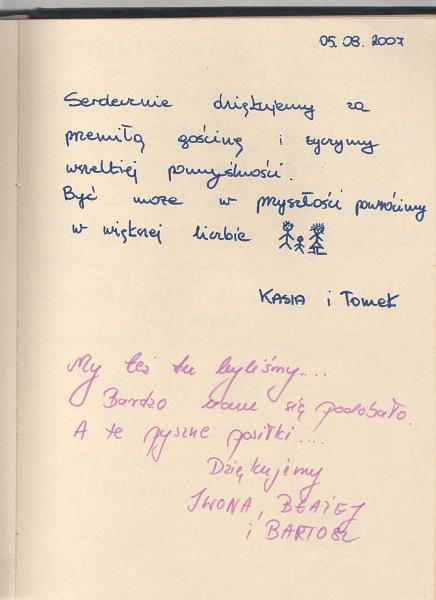 05.08.2007
Serdecznie dziękujemy za
przemiłą gościnę i życzymy
wszelkiej pomyślności.
Być może w przyszłości powrócimy
w większej liczbie
KASIA i Tomek
My też tu byliśmy....
Bardzo nam się podobało.
A te pyszne posiłki....
Dziękujemy
IWONA, BŁAŻEJ
i BARTOSZ